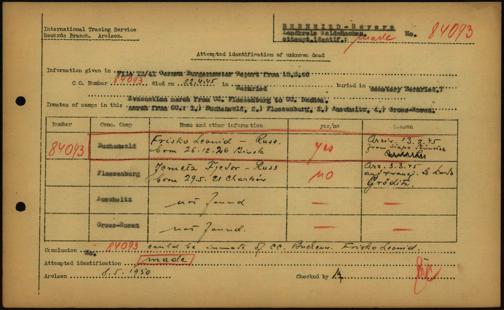 International Tracing Service
Records Branch, Arolsen.
No. 84093
made
Attempted identification of unknown dead
Information given in File
German Burgermeister Report from
C.C. Number 84093 died on 22.4.45 in buried in Cemetery
Evacuation march from CC. Flossenburg to CC. Dachau.
Inmates of camps in this march from CC: 1,) Buchenwald, 2,) Flossenburg, 3,) Auschwitz, 4,) Gross-Rosen.
Number Conc. Camp Name and other information yes/no Reason
84093 Buchenwald Frisko Leonid - Russ. yes Arriv. 13.2.45
born 26.12.26
Flossenburg Fjedor - Russ no Arr. 3.3.45
born 29.5.21 Charkow
Gröditz
Auschwitz not found
Gross-Rosen not found.
Conclusion No. 84093 could be inmate of CC. Buchenw. Frisko Leonid.
Attempted identification made
Arolsen 8.5.1950 Checked by